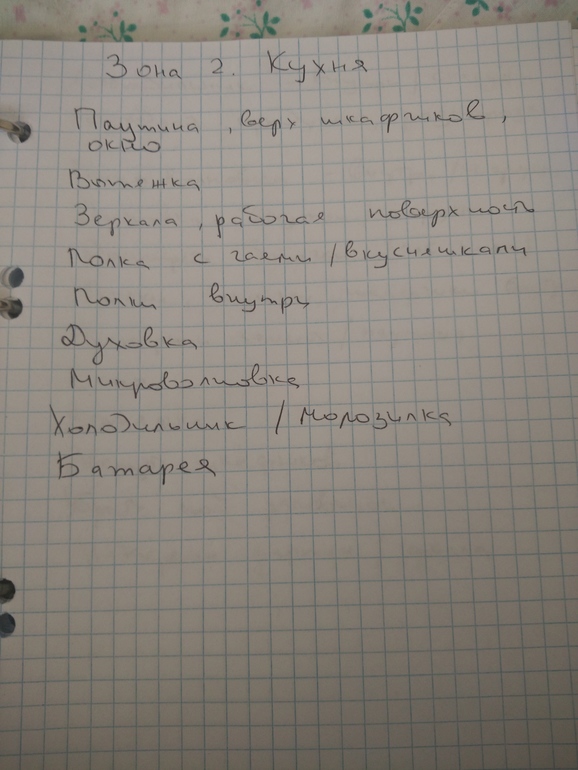 Зона 2. Кухня
Паутина, верх шкафчиков,
окно
Вытяжка
Зеркала, рабочая поверхность
Полка с чаями / вкусняшками
Полки внутри
Духовка
Микроволновка
Холодильник / морозилка
Батарея